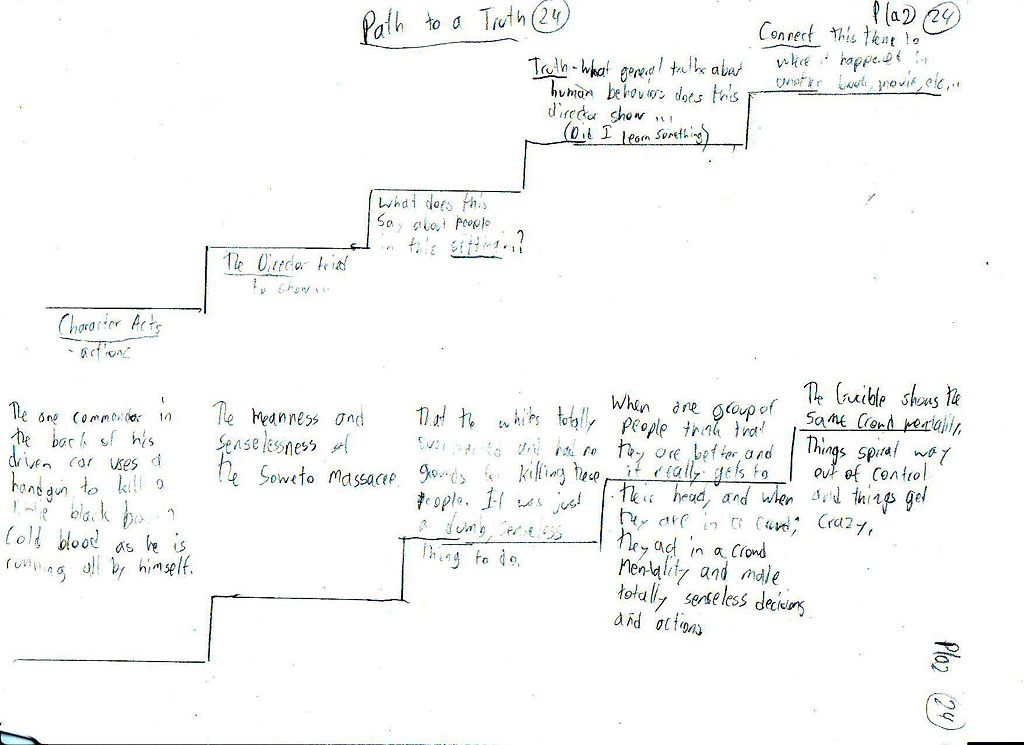 Path to a Truth 24
P(a2) 24
Connect this theme to
where it happened in
another book, movie, etc...
Truth - What general truths about
human behaviors does this
director show ...
(Did I learn something)
What does this
say about people
in this setting...?
The Director tried
to show...
Character Acts
- actions
The one commander in
the back of his
driven car uses a
handgun to kill a
little black boy
Cold blood as he is
running all by himself.
The Meanness and
senselessness of
the Soweto Massacree.
That the whites totally
and had no
grounds for killing these
people. It was just
a dumb, senseless
thing to do.
When one group of
people think that
they are better and
it really gets to
their head, and when
they are in a crowd,
they act in a crowd
mentality and make
totally senseless decisions
and actions
The Crucible shows the
same crowd mentality.
Things spiral way
out of control
and things get
crazy.
P(a2 24